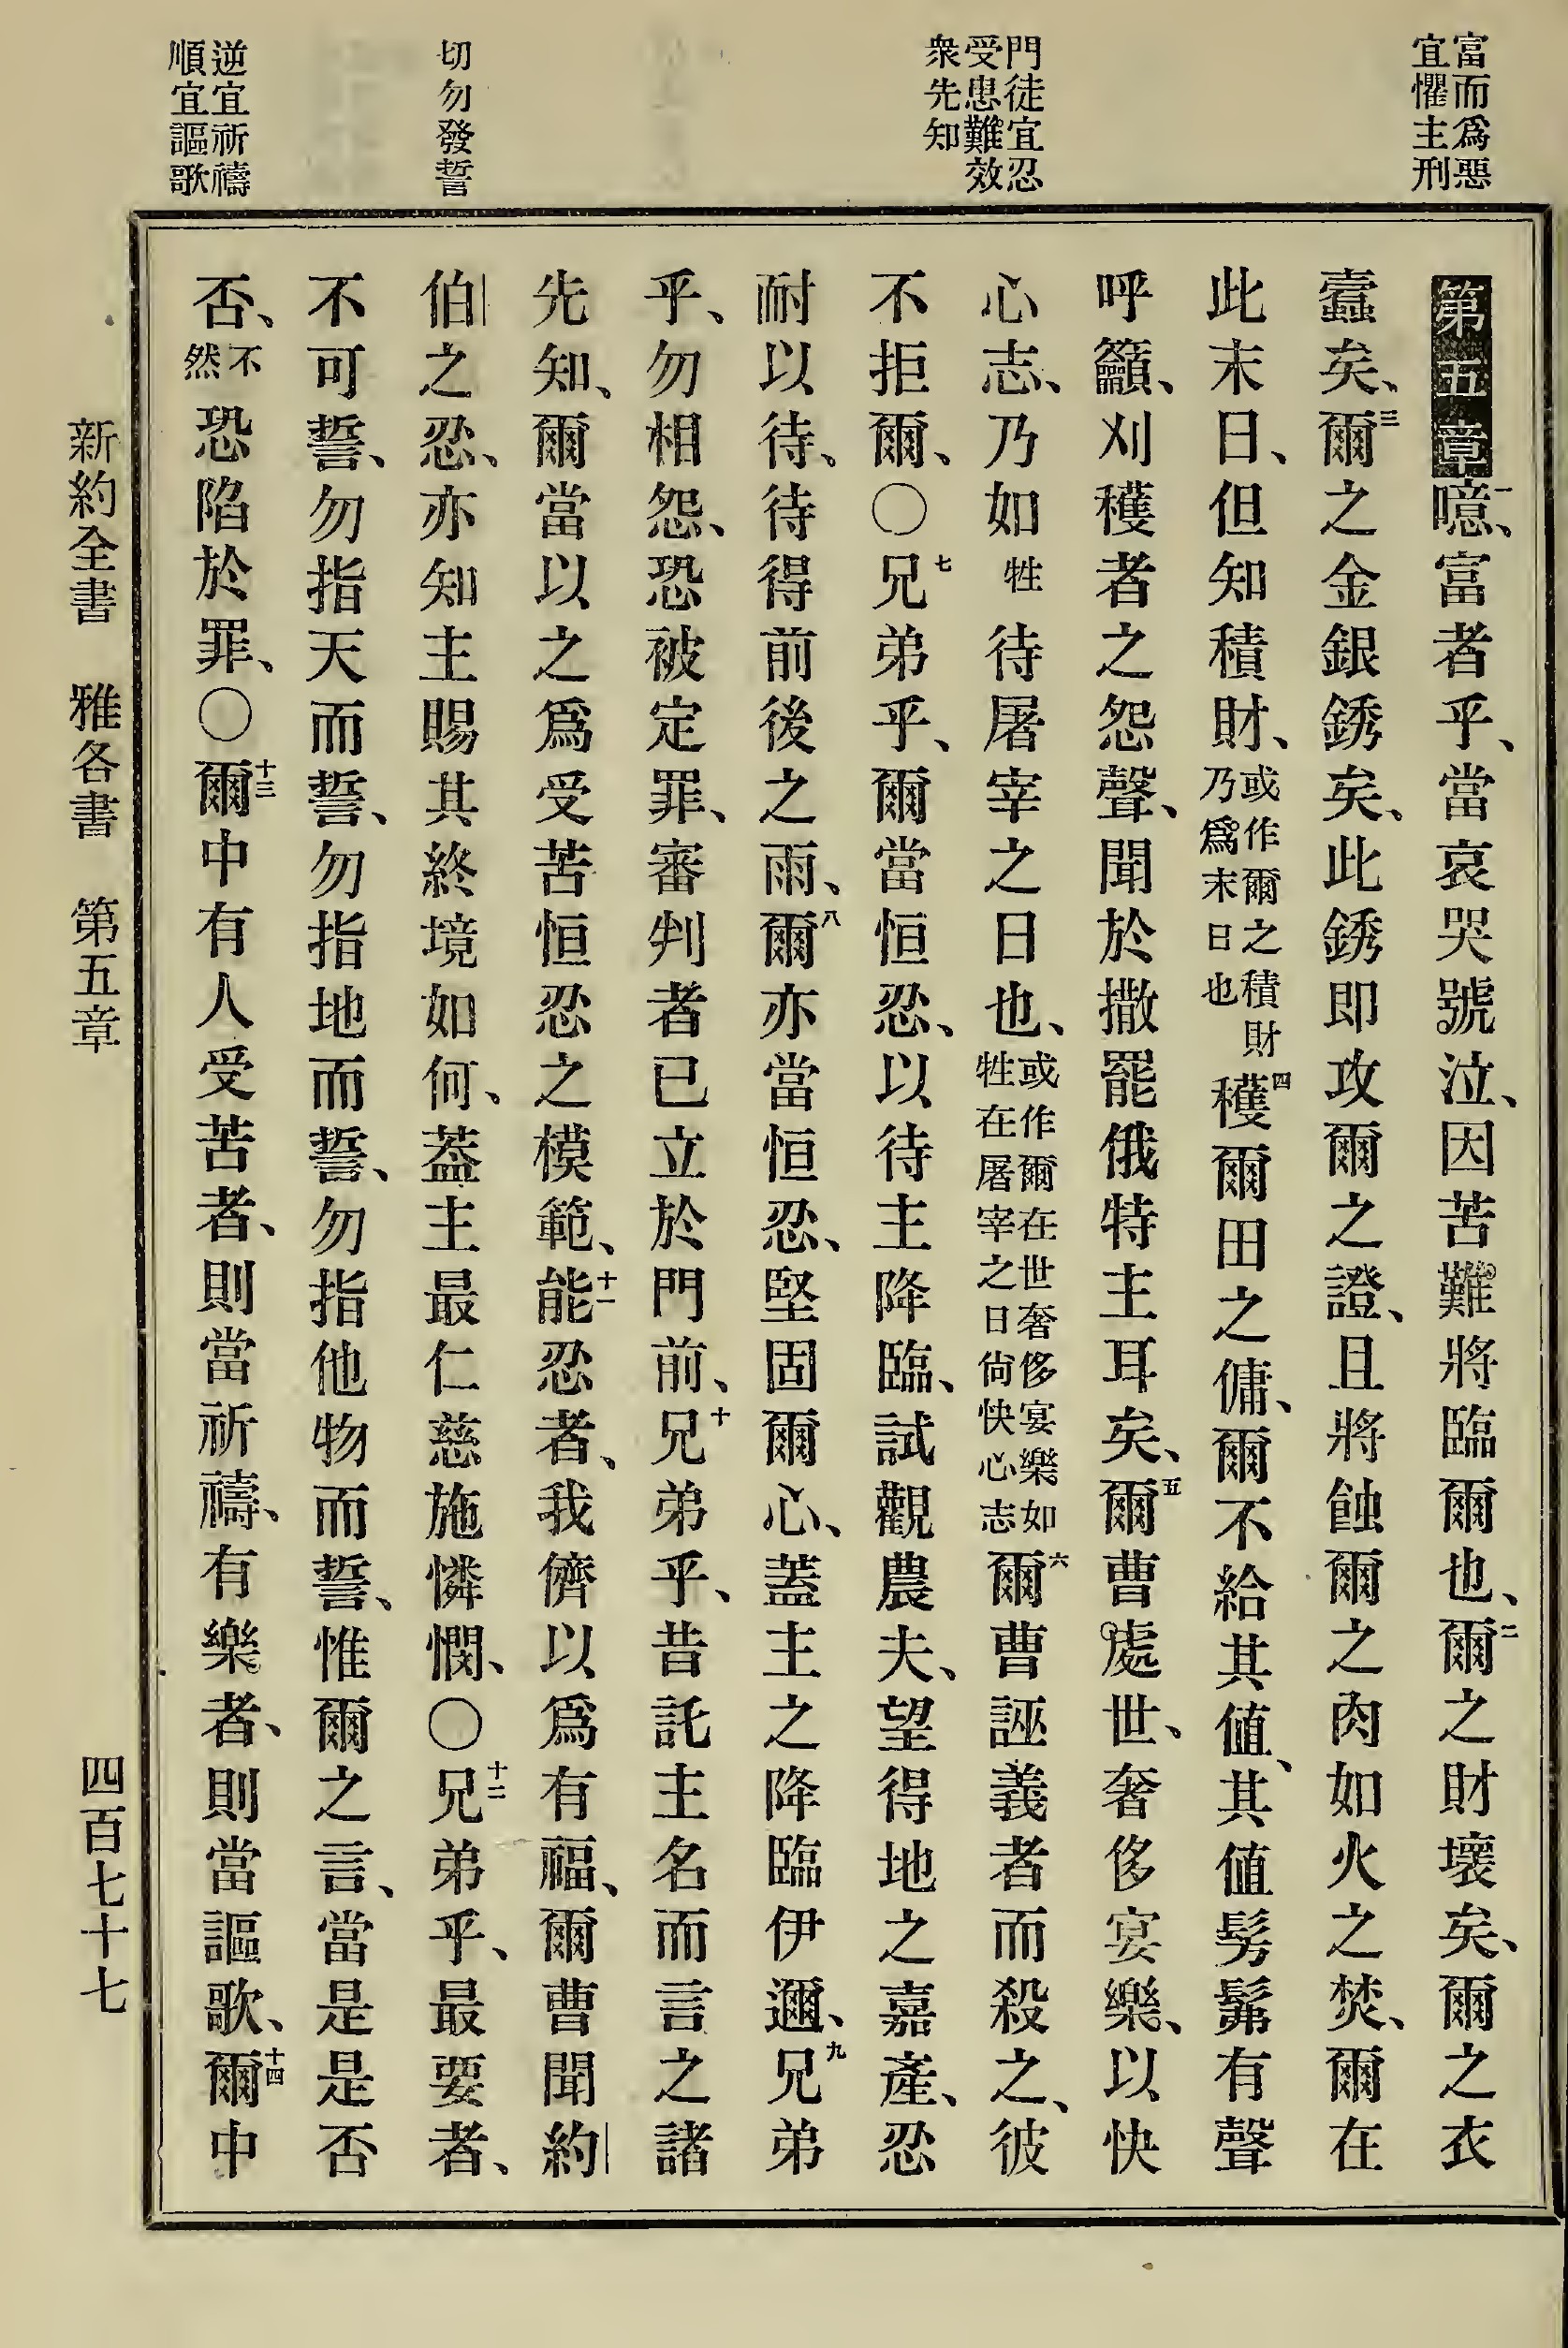 富而爲惡
宜懼主刑
門徒宜忍
受患難效
衆先知
切勿發誓
逆宜祈禱
順宜謳歌
第五章一噫、富者乎、當哀哭號泣、因苦難將臨爾也、二爾之財壞矣、爾之衣
蠹矣、三爾之金銀銹矣、此銹即攻爾之證、且將蝕爾之肉如火之焚、爾在
此末日、但知積財、或作爾之積財乃爲末日也四穫爾田之傭、爾不給其値、其値髣髴有聲
呼籲、刈穫者之怨聲、聞於撒罷俄特主耳矣、五爾曹處世、奢侈宴樂、以快
心志、乃如牲待屠宰之日也、或作爾在世奢侈宴樂如牲在屠宰之日尙快心志六爾曹誣義者而殺之、彼
不拒爾、〇七兄弟乎、爾當恒忍、以待主降臨、試觀農夫、望得地之嘉產、忍
耐以待、待得前後之雨、八爾亦當恒忍、堅固爾心、蓋主之降臨伊邇、九兄弟
乎、勿相怨、恐被定罪、審判者已立於門前、十兄弟乎、昔託主名而言之諸
先知、爾當以之爲受苦恒忍之模範、十一能忍者、我儕以爲有福、爾曹聞約
伯之忍、亦知主賜其終境如何、蓋主最仁慈施憐憫、〇十二兄弟乎、最要者、
不可誓、勿指天而誓、勿指地而誓、勿指他物而誓、惟爾之言、當是是否
否、不然恐陷於罪、〇十三爾中有人受苦者、則當祈禱、有樂者、則當謳歌、十四爾中
新約全書 雅各書 第五章 四百七十七